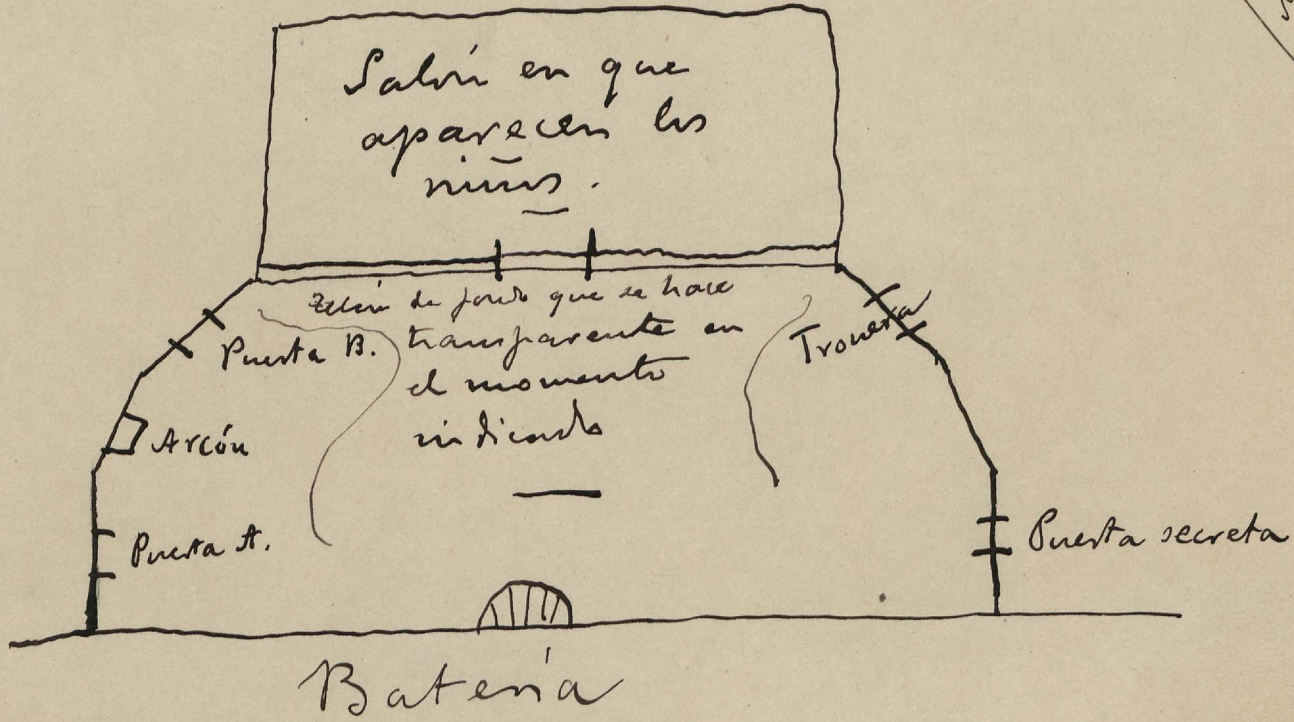 Salón en que
aparecen los
niños.
Telón de fondo que se hace
transparente en
el momento
indicado
Puerta B.
Tronera
Arcón
Puerta A.
Puerta secreta
Batería